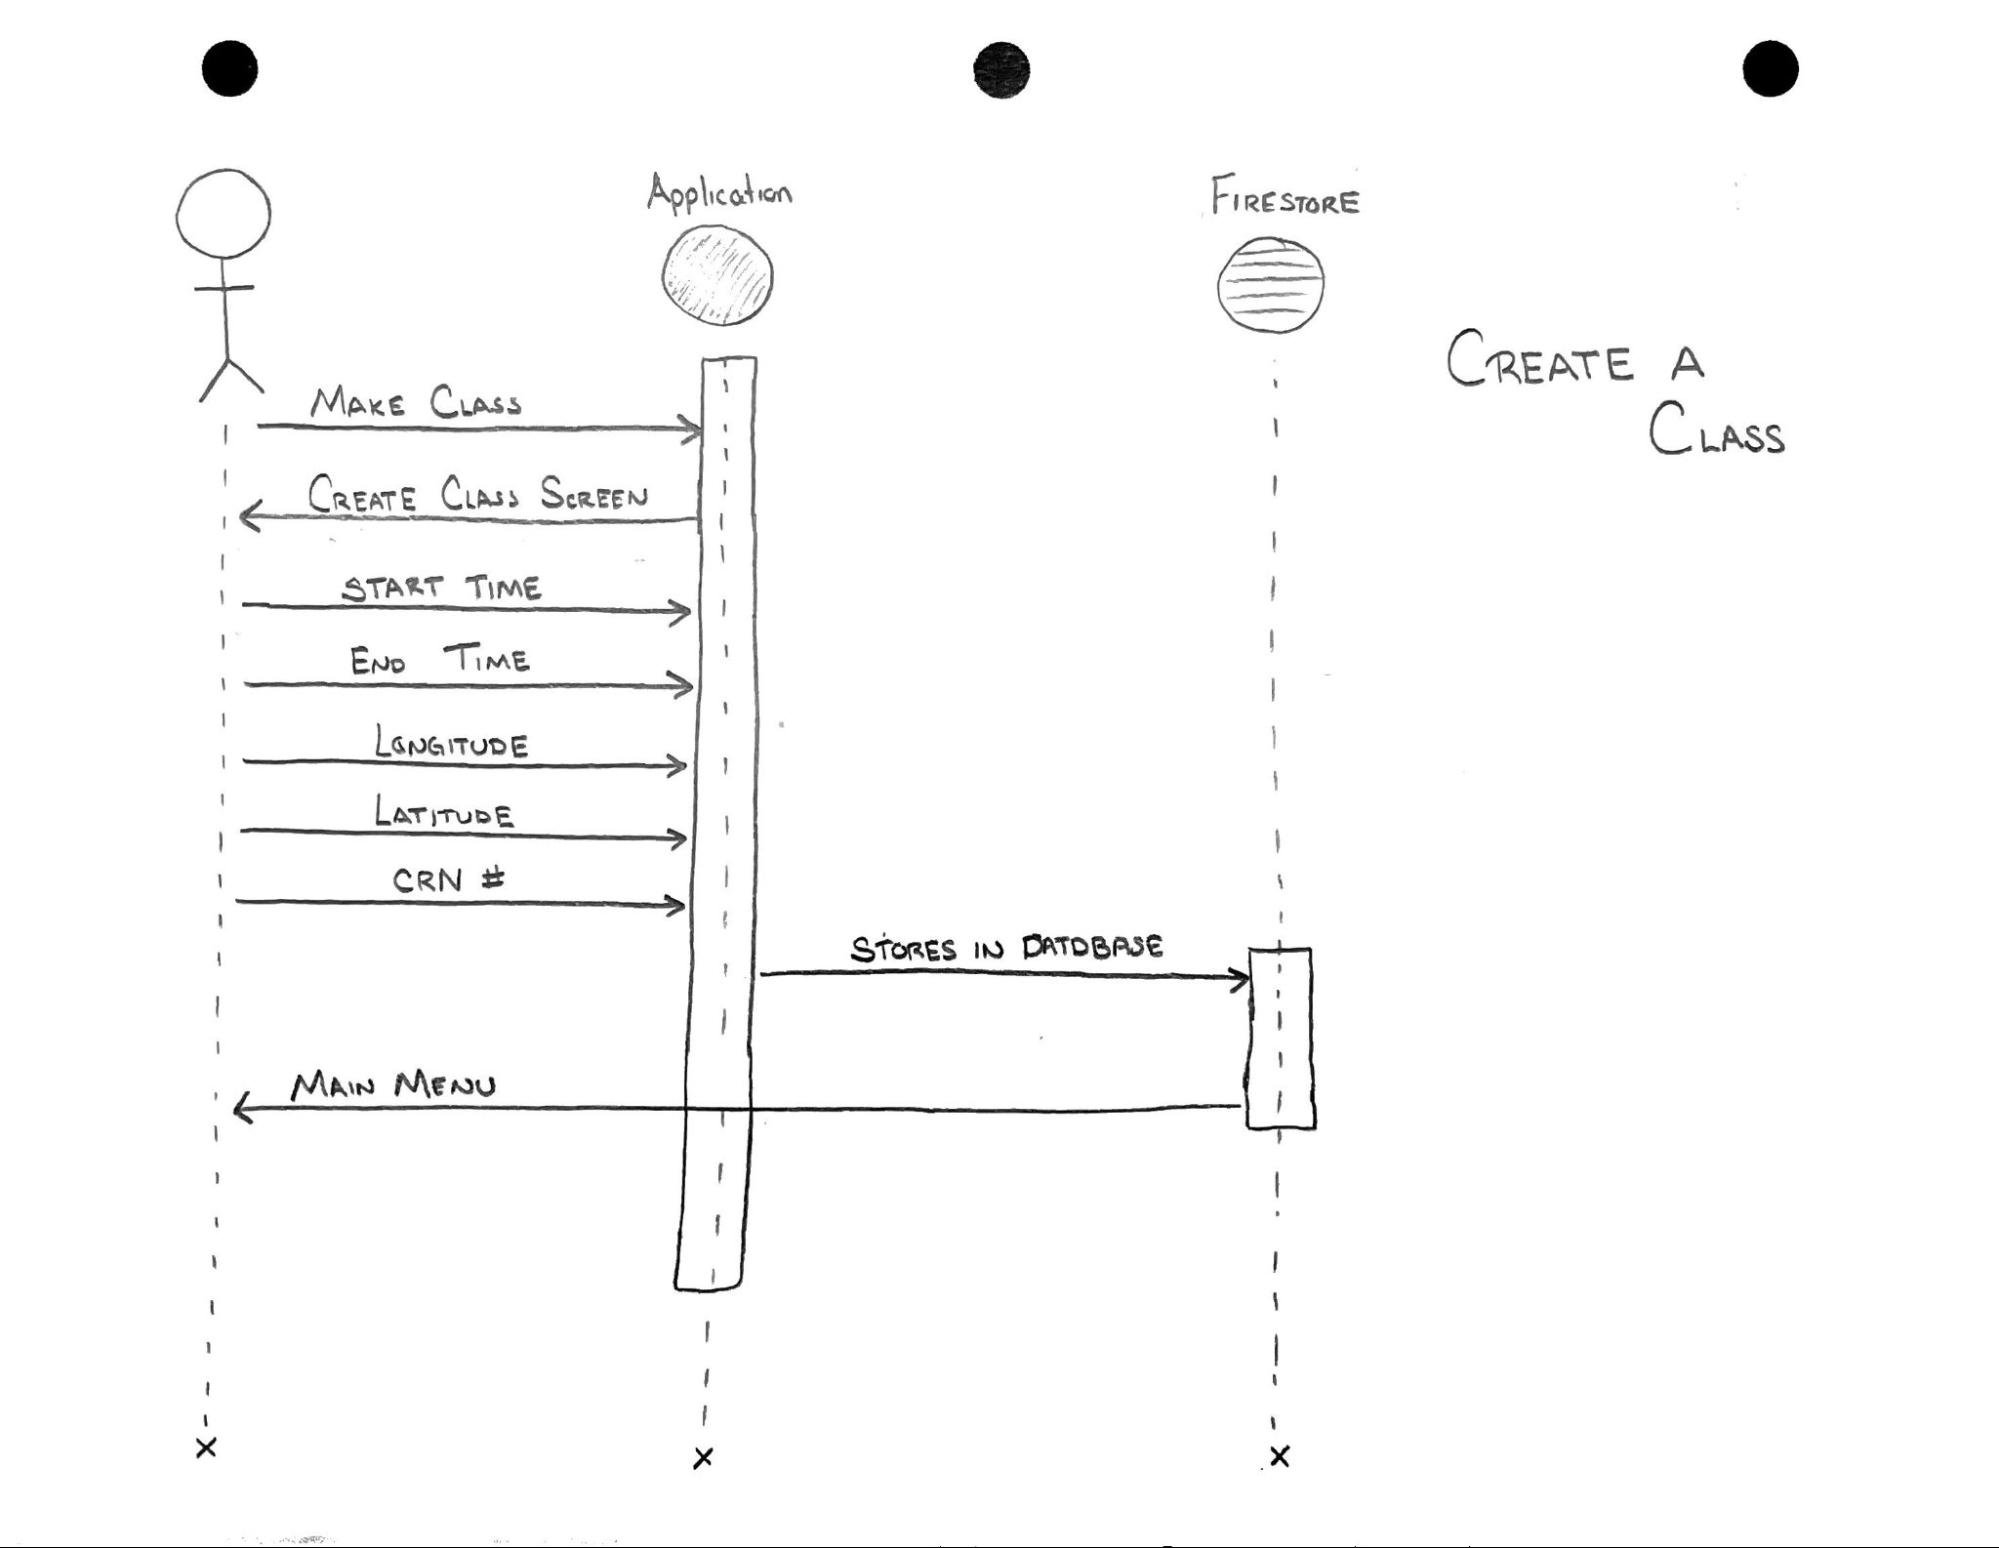 Application
FIRESTORE
CREATE A
CLASS
MAKE CLASS
CREATE CLASS SCREEN
START TIME
END TIME
LONGITUDE
LATITUDE
CRN #
STORES IN DATDBASE
MAIN MENU